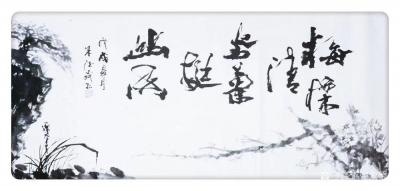 梅標
清
骨蘭
挺
幽芳
戊戌夏月